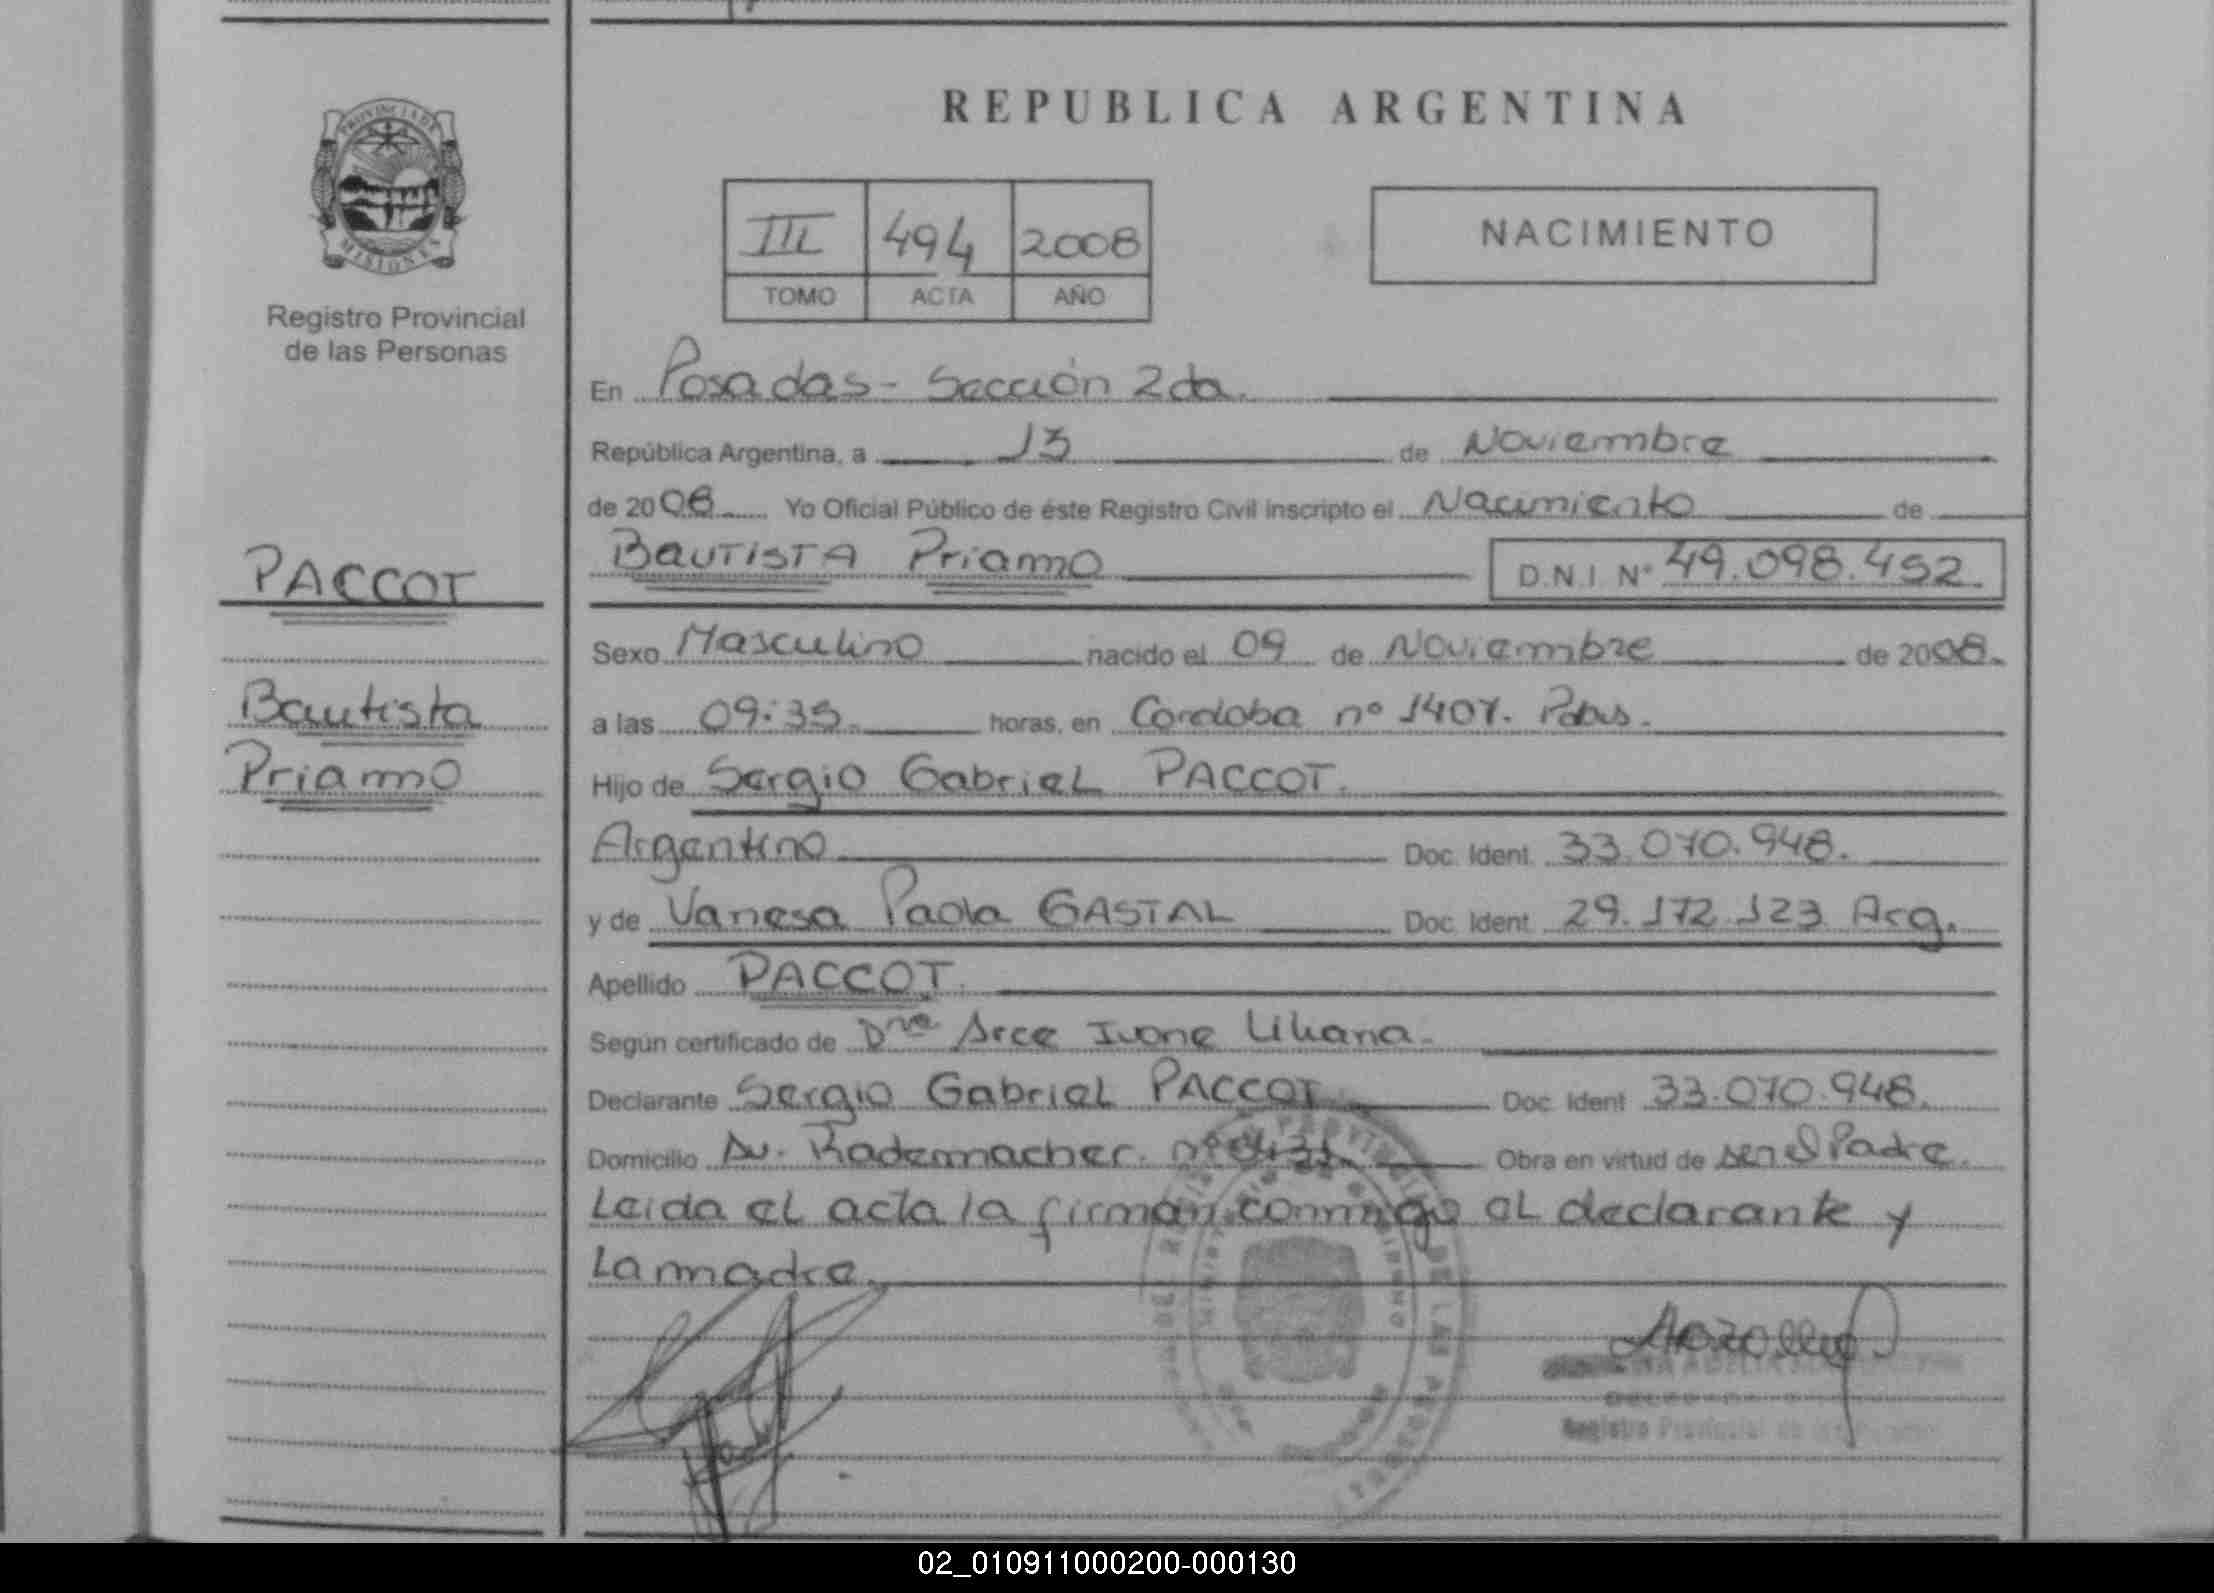 REPUBLICA ARGENTINA
PROVINCIA DE
MISIONES
Registro Provincial
de las Personas
III 494 2008
TOMO ACTA AÑO
NACIMIENTO
En Posadas - Sección 2da.
República Argentina, a 13 de Noviembre
de 2008 Yo Oficial Público de éste Registro Civil inscripto el Nacimiento de
PACCOT
Bautista
Priamo
BAUTISTA Priamo D.N.I Nº 49.098.452.
Sexo Masculino nacido el 09 de Noviembre de 2008.
a las 09:35. horas, en Cordoba nº 1407. Pdas.
Hijo de Sergio Gabriel PACCOT.
Argentino Doc. Ident. 33.070.948.
y de Vanesa Paola GASTAL Doc. Ident. 29.172.123 Arg.
Apellido PACCOT.
Según certificado de Dra Arce Ivone Liliana.
Declarante Sergio Gabriel PACCOT Doc. Ident. 33.070.948.
Domicilio Av. Rademacher. nº Obra en virtud de ser el Padre.
Leida el acta la firman conmigo el declarante y
La madre.
Registro Provincial de las
02_010911000200-000130